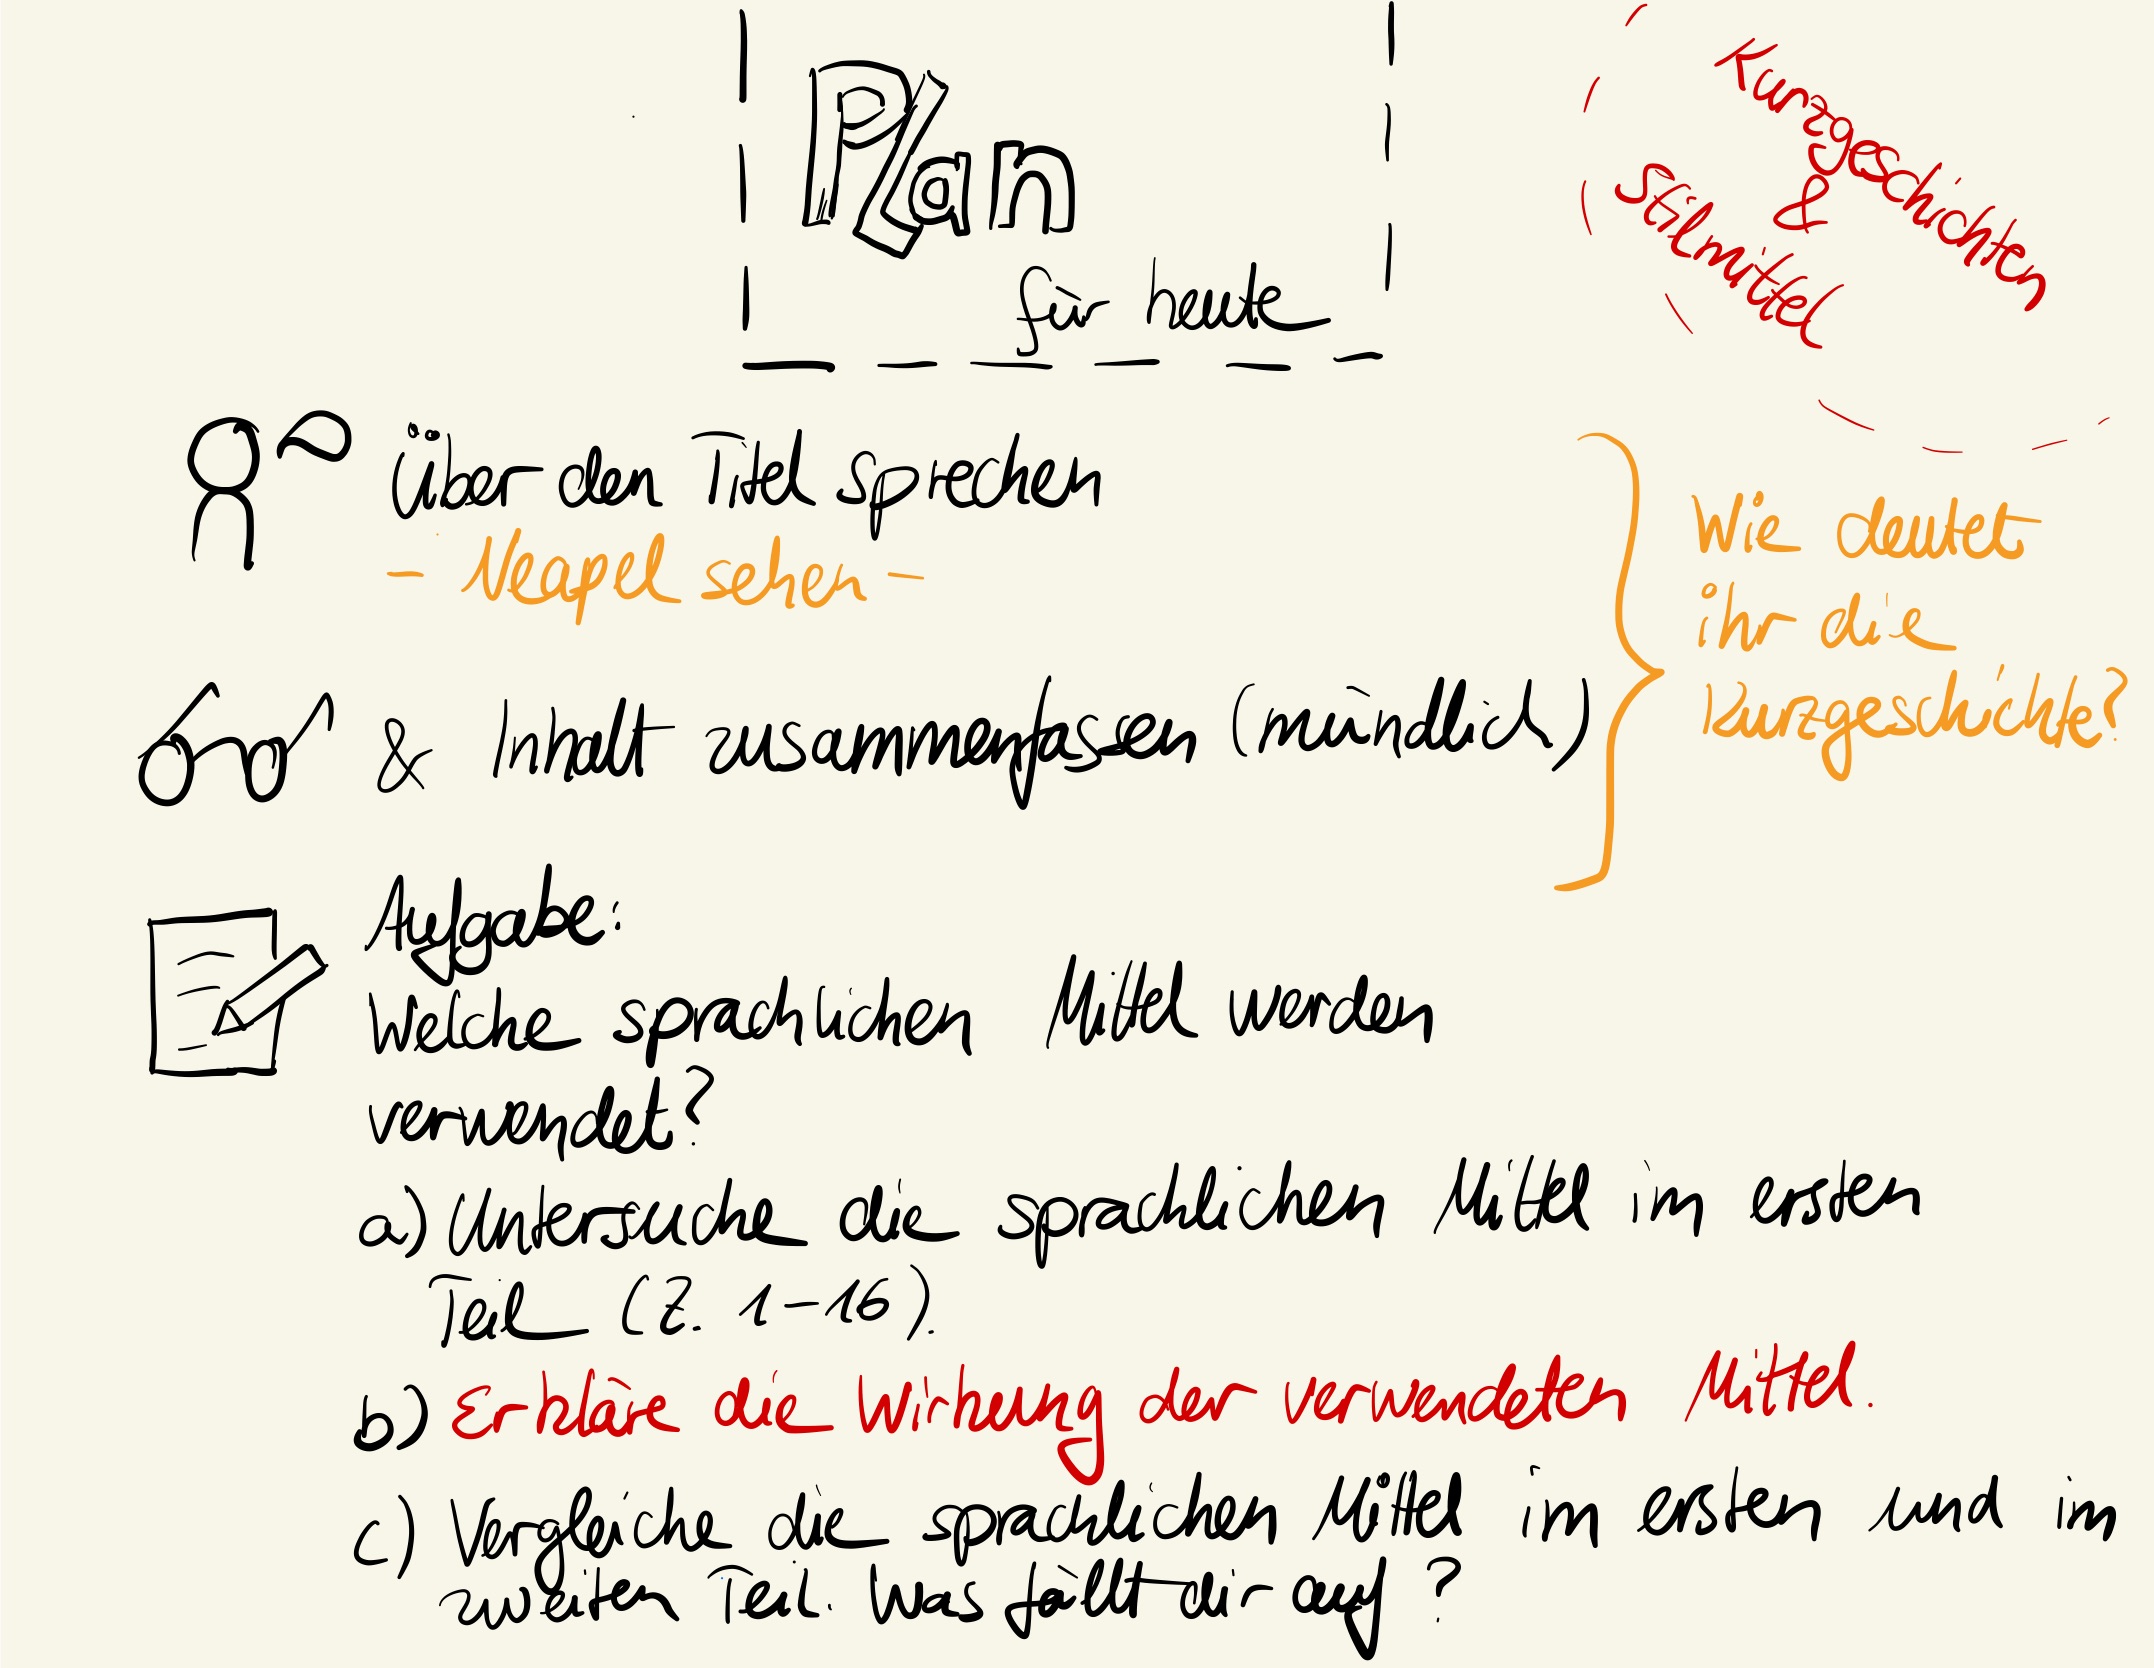 Plan
für heute
Kurzgeschichten
&
Stilmittel
Über den Titel sprechen
- Neapel sehen -
& Inhalt zusammenfassen (mündlich)
Wie deutet
ihr die
Kurzgeschichte?
Aufgabe:
Welche sprachlichen Mittel werden
verwendet?
a) Untersuche die sprachlichen Mittel im ersten
Teil (Z. 1-16).
b) Erkläre die Wirkung der verwendeten Mittel.
c) Vergleiche die sprachlichen Mittel im ersten und im
zweiten Teil. Was fällt dir auf?